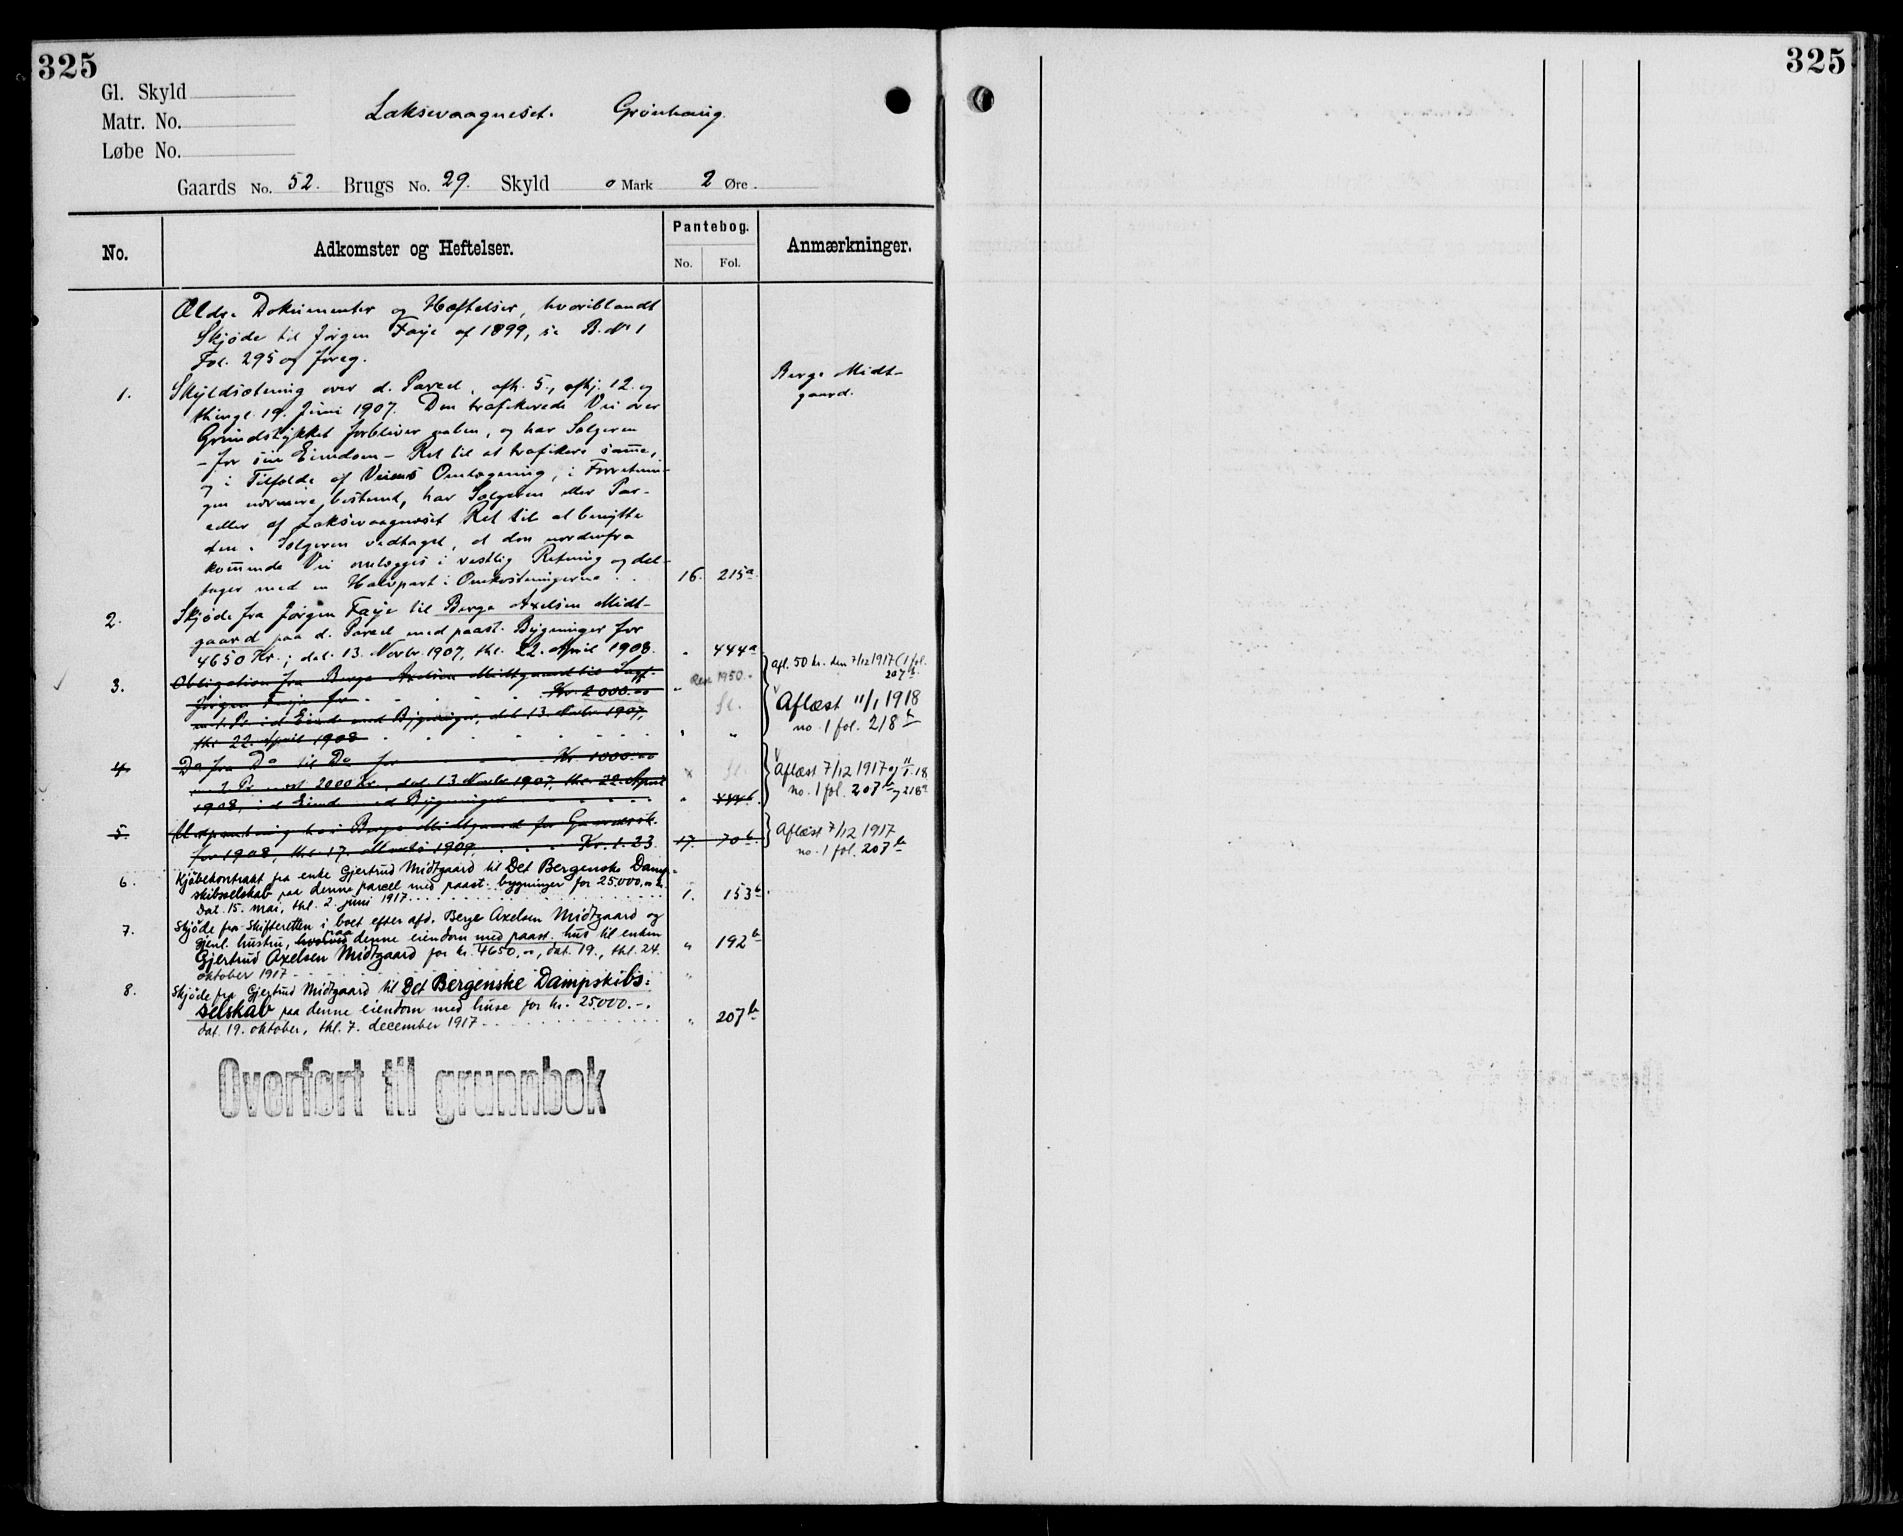 325
325
Gl. Skyld
Matr. No.
Løbe No.
Laksevaagneset. Grønhaug.
Gaards No. 52. Brugs No. 29. Skyld 0 Mark 2 Øre.
No.
Adkomster og Heftelser.
Pantebog.
No. Fol.
Anmærkninger.
Ældre Dokumenter og Hæftelser, hvoriblandt
Skjøde til Jørgen Faye af 1899, se B. No 1
Fol. 295 og foreg.
Berge Midt-
gaard.
1. Skyldsætning over d. Parcel, afh. 5., afhj. 12. og
thingl. 19. Juni 1907. Den trafikerede Vei over
Grundstykket forbliver aaben, og har Sælgeren
- for sin Eiendom - Ret til at trafikere samme,
og i Tilfælde af Veiens Omlægning, i Forretnin-
gen nærmere bestemt, har Sælgeren eller Par-
celler af Laksevaagneset Ret til at benytte
den. Sælgeren vedtaget, at den nordenfra
kommende Vei omlægges i vestlig Retning og del-
tager med en Halvpart i Omkostningerne . . 16. 215a.
2. Skjøde fra Jørgen Faye til Berge Axelsen Midt-
gaard paa d. Parcel med paast. Bygninger for
4650 Kr.; dat. 13. Novbr. 1907, thl. 22. April 1908. " 444a
3. Obligation fra Berge Axelsen Midtgaard til Sagf.
Jørgen Faye for - - - - Kr. 2000.00 "
m. 1. Pr. i d. Eiend. med Bygninger, dat. 13. Novbr. 1907,
thl. 22. April 1908 - - - - - " "
1950.-
afl. 50 kr. den 7/12 1917 (1 fol.
207b.
Aflæst 11/1 1918
no. 1 fol. 218b
4. Do fra Do til Do for - - - Kr. 1000.00
m. 2. Pr. 2000 Kr., dat. 13. Novbr. 1907, thl. 22. April
1908, i d. Eiend. med Bygninger - - - - " 444b.
Aflæst 7/12 1917 og 11/1. 18
no. 1 fol. 207b og 218a
5. Udpantning hos Berge Midtgaard for
for 1908, thl. 17. Marts 1909, - - - Kr. 1.23. 17. 70b.
Aflæst 7/12 1917
no. 1 fol. 207b
6. Kjøbekontrakt fra enke Gjertrud Midtgaard til Det Bergenske Damp-
skibsselskab paa denne parcel med paast. bygninger for 25000,00 kr.
dat. 15. mai, thl. 2. juni 1917 . . . . . . 1. 153b
7. Skjøde fra Skifteretten i boet efter afd. Berge Axelsen Midtgaard og
gjenl. hustru, hvorved paa denne eiendom med paast. hus til enken
Gjertrud Axelsen Midtgaard for kr. 4650,00, dat. 19., thl. 24.
oktober 1917 - - - - - " 192b
8. Skjøde fra Gjertrud Midtgaard til Det Bergenske Dampskibs-
selskab paa denne eiendom med huse for kr. 25000.-.
dat. 19. oktober, thl. 7. december 1917 - - - - " 207b
Overført til grunnbok